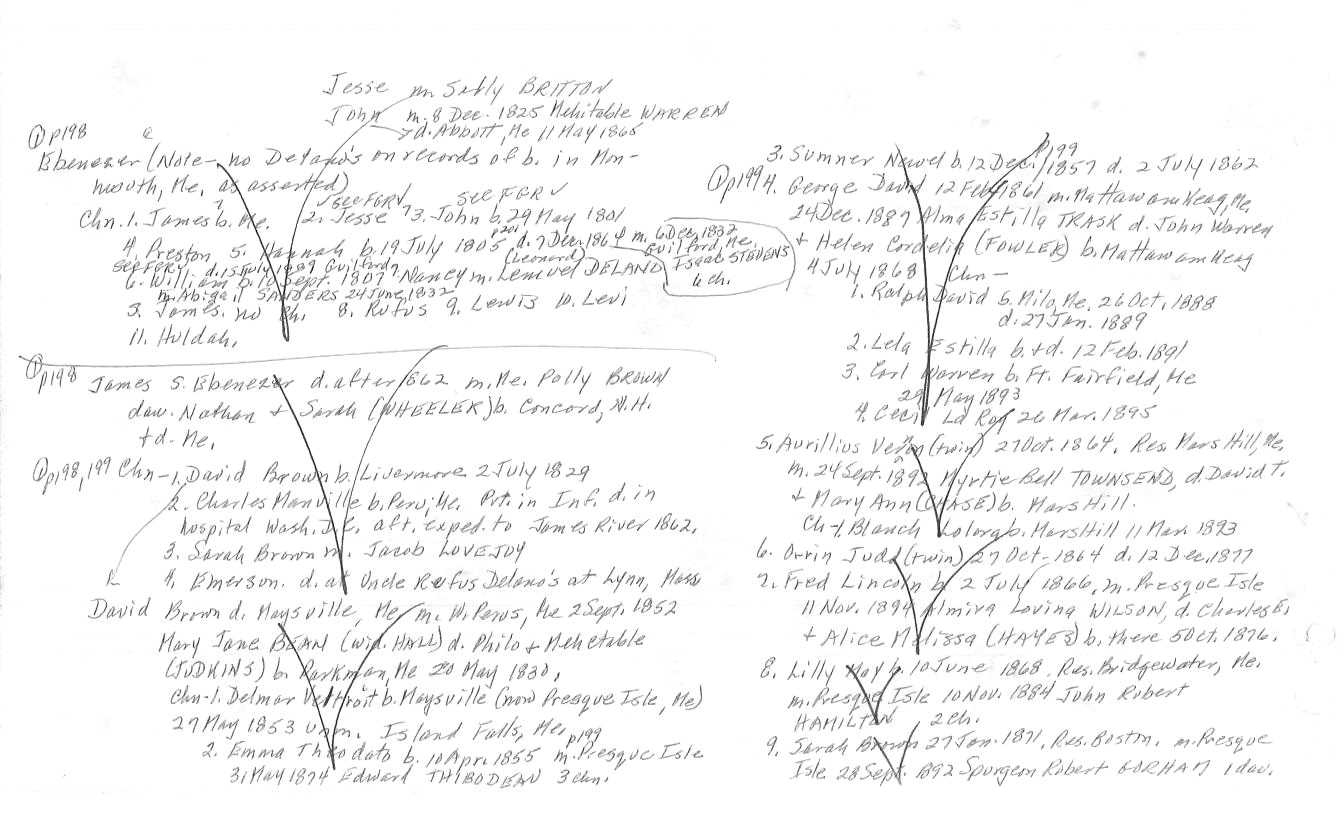 Jesse m. Sally BRITTON
John m. 8 Dec. 1825 Mehitable WARREN
→ d. Abbott, Me 11 May 1865
① p198
Ebenezer (Note - no Delano's on records of b. in Mon-
mouth, Me. as asserted)
✓ SEE FERY SEE FERV ✓
Chn. 1. James b. Me. 2. Jesse 3. John b. 29 May 1801
4. Preston 5. Hannah b. 19 July 1805 p201 d. 7 Dec. 1864 m. 6 Dec. 1832
Guilford, Me.
Isaac STEVENS
6 ch.
SEE FERY d. 15 July 1889 Guilford? (Leonard)
6. William b. 10 Sept. 1807 Nancy m. Lemuel DELAND
m. Abigail SANDERS 24 June 1832
3. James. no Ch. 8. Rufus 9. Lewis 10. Levi
11. Huldah.
① p198
James s. Ebenezer d. after 1862 m. Me. Polly BROWN
daw. Nathan + Sarah (WHEELER) b. Concord, N.H.
+ d. Me.
① p198,199 Chn - 1. David Brown b. Livermore 2 July 1829
2. Charles Manville b. Peru, Me. Pvt. in Inf. d. in
hospital Wash. D.C. aft. exped. to James River 1862.
3. Sarah Brown m. Jacob LOVEJOY
4. Emerson. d. at Uncle Rufus Delano's at Lynn, Mass
David Brown d. Maysville, Me m. W. Perus, Me 2 Sept. 1852
Mary Jane BEAN (wid. HALL) d. Philo + Mehetable
(JUDKINS) b. Parkman, Me 20 May 1830.
Chn - 1. Delmar b. Maysville (now Presque Isle, Me)
27 May 1853 unm. Island Falls, Me. p199
2. Emma Theodato b. 10 Apr. 1855 m. Presque Isle
31 May 1874 Edward THIBODEAU 3 chn.
3. Sumner Newel b. 12 Dec. 1857 d. 2 July 1862
p199
① p199 4. George David 12 Feb 1861 m. Mattawamkeag, Me.
24 Dec. 1887 Alma Estilla TRASK d. John Warren
+ Helen Cordelia (FOWLER) b. Mattawamkeag
4 July 1868 Chn -
1. Ralph David b. Milo, Me. 26 Oct. 1888
d. 27 Jan. 1889
2. Lela Estilla b. + d. 12 Feb. 1891
3. Earl Warren b. Ft. Fairfield, Me
29 May 1893
4. Cecil La Roy 26 Mar. 1895
5. Aurillius Veron (twin) 27 Oct. 1864. Res. Mars Hill, Me.
m. 24 Sept. 1892 Myrtie Bell TOWNSEND, d. David T.
+ Mary Ann (CHASE) b. Mars Hill.
Ch - 1. Blanch b. Mars Hill 11 Mar. 1893
6. Orrin Judd (twin) 27 Oct - 1864 d. 12 Dec. 1877
7. Fred Lincoln b. 2 July 1866, m. Presque Isle
11 Nov. 1894 Almira Loving WILSON, d. Charles E.
+ Alice Melissa (HAYES) b. there 5 Oct. 1876.
8. Lilly May b. 10 June 1868. Res. Bridgewater, Me.
m. Presque Isle 10 Nov. 1884 John Robert
HAMILTON 2 ch.
9. Sarah Brown 27 Jan. 1871, Res. Boston. m. Presque
Isle 28 Sept. 1892 Spurgeon Robert GORHAM 1 dau.